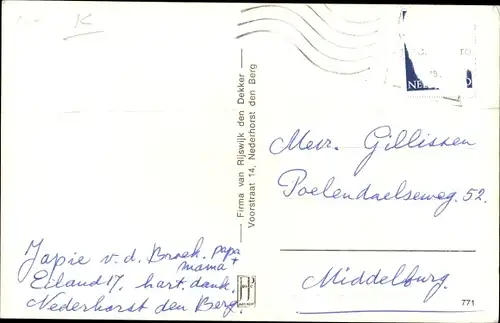 K
Firma van Rijswijk den Dekker —
Voorstraat 14, Nederhorst den Berg
Mevr. Gillissen
Poelendaelseweg. 52.
Middelburg.
Japie v.d. Broek. papa +
mama
Eiland 17, hart. dank.
Nederhorst den Berg
771